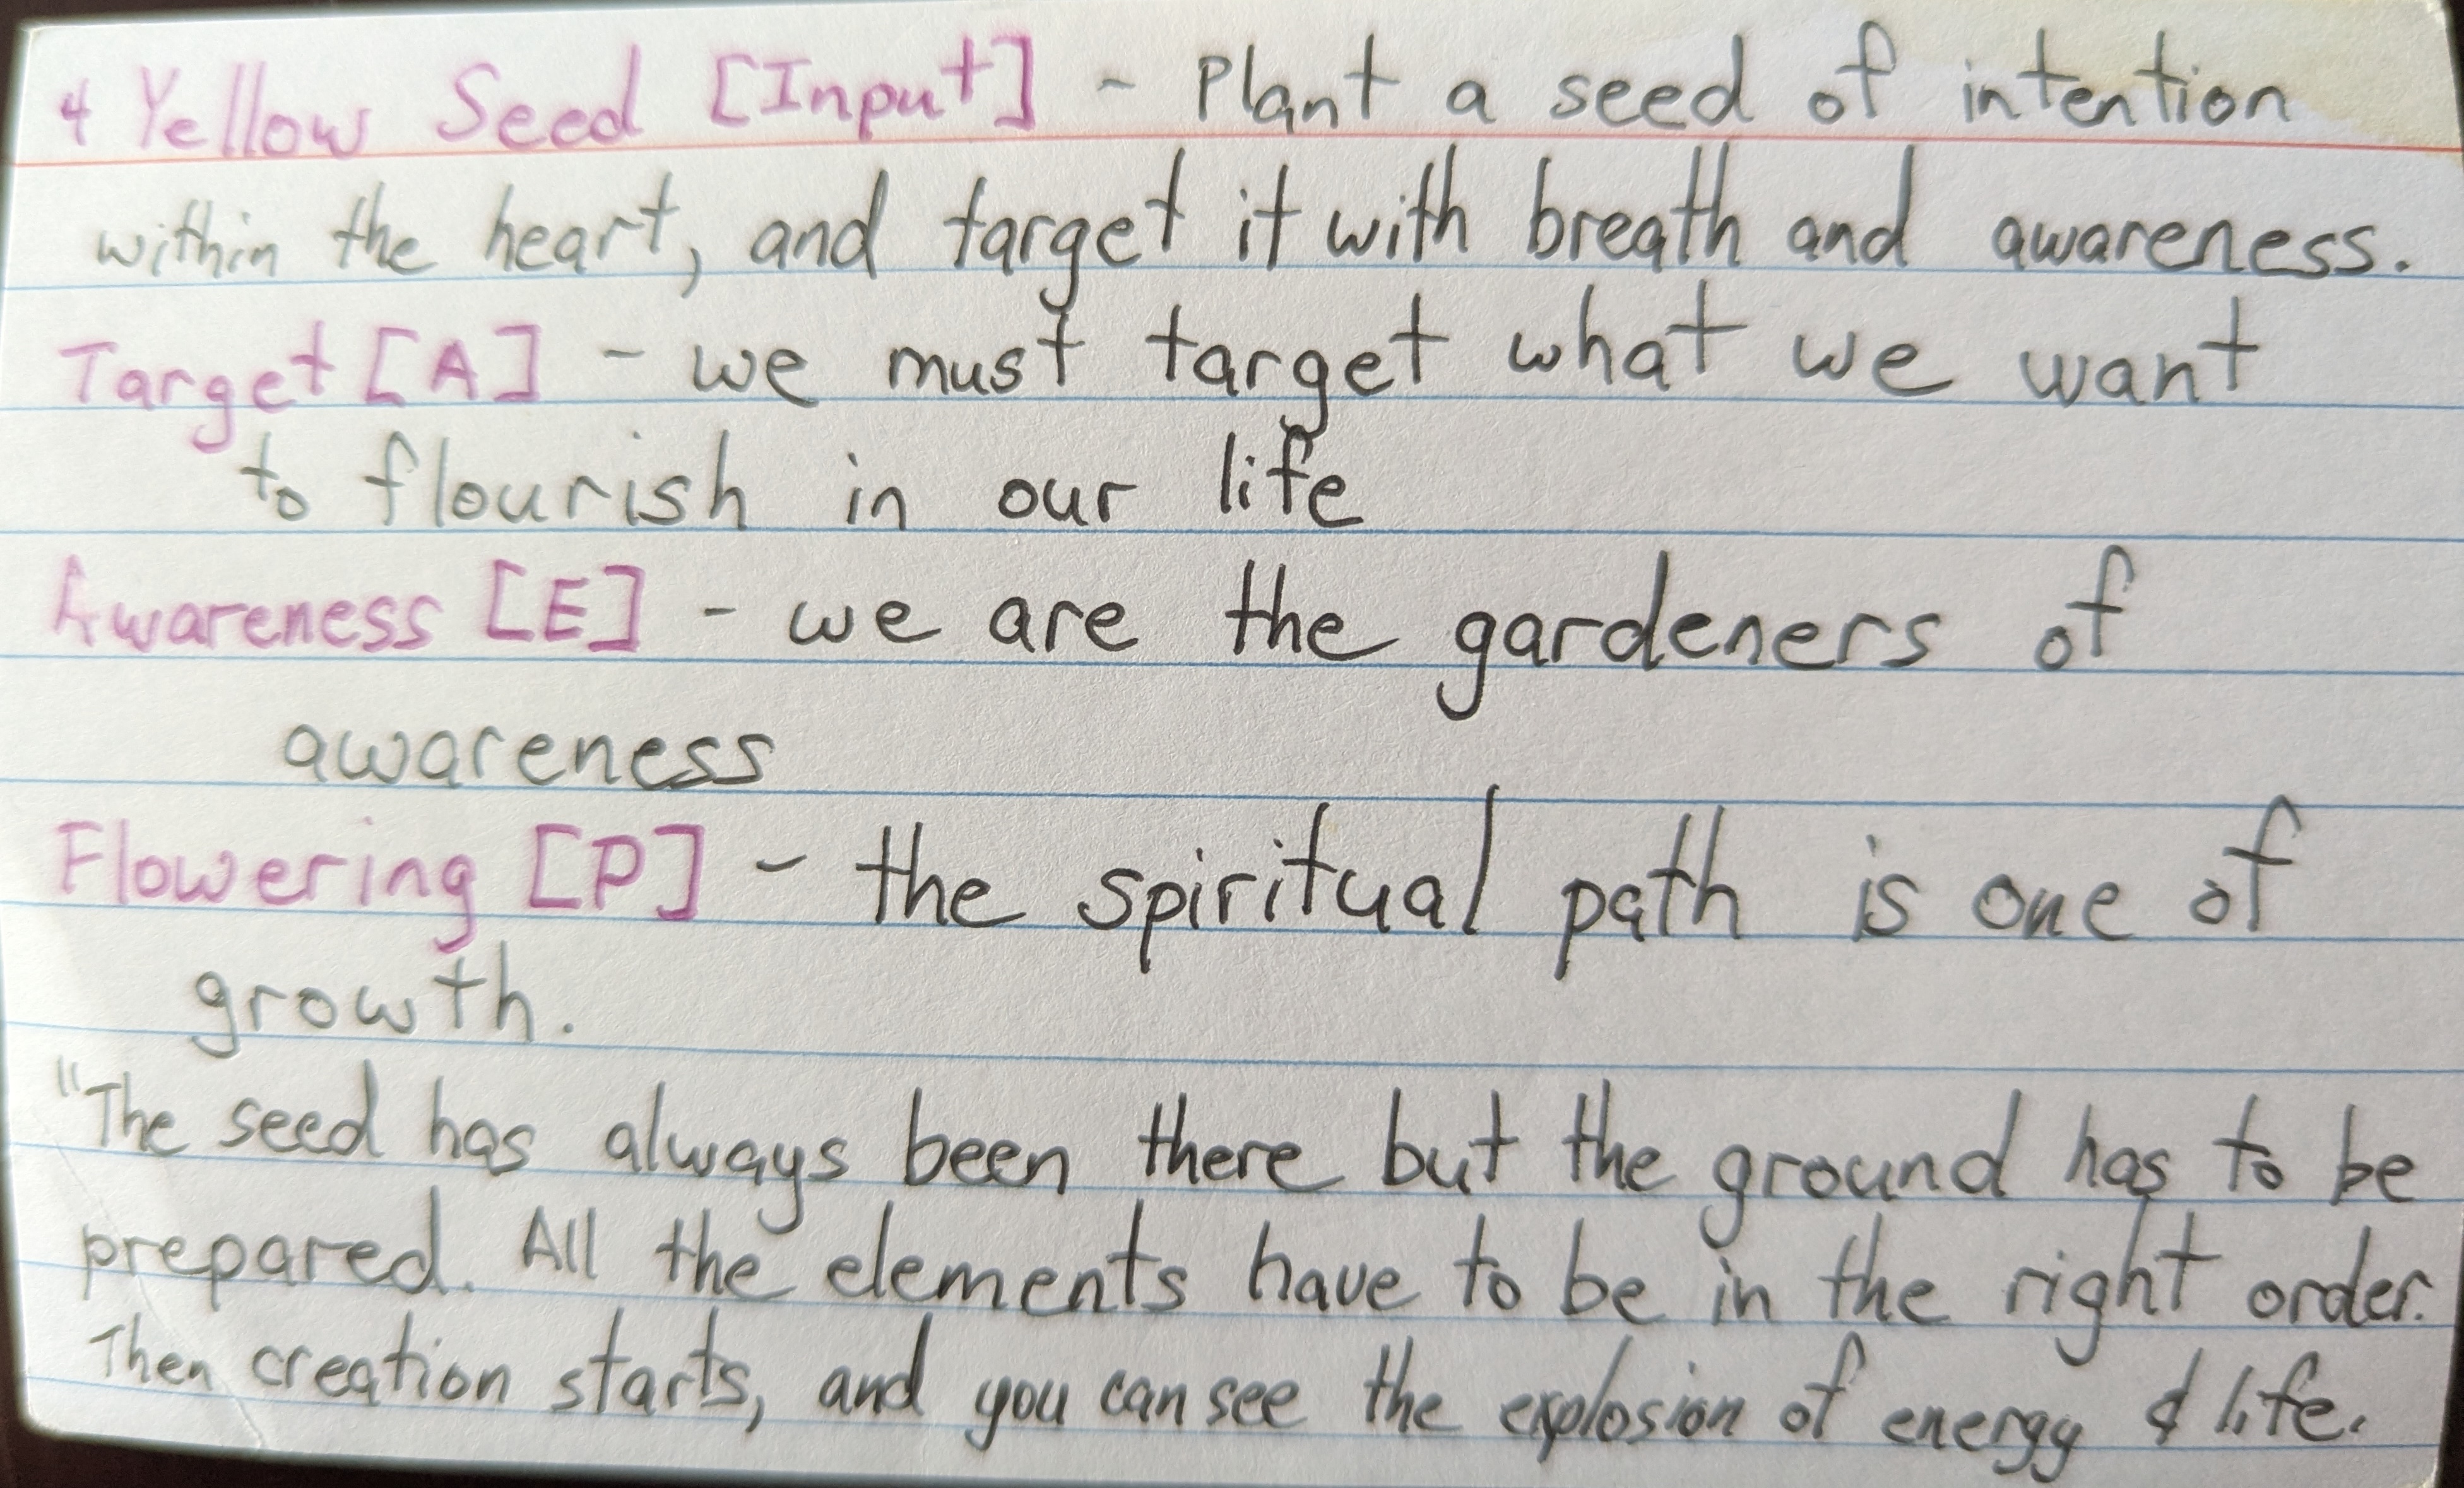 4 Yellow Seed [Input] - Plant a seed of intention
within the heart, and target it with breath and awareness.
Target [A] - we must target what we want
to flourish in our life
Awareness [E] - we are the gardeners of
awareness
Flowering [P] - the spiritual path is one of
growth.
"The seed has always been there but the ground has to be
prepared. All the elements have to be in the right order.
Then creation starts, and you can see the explosion of energy & life.